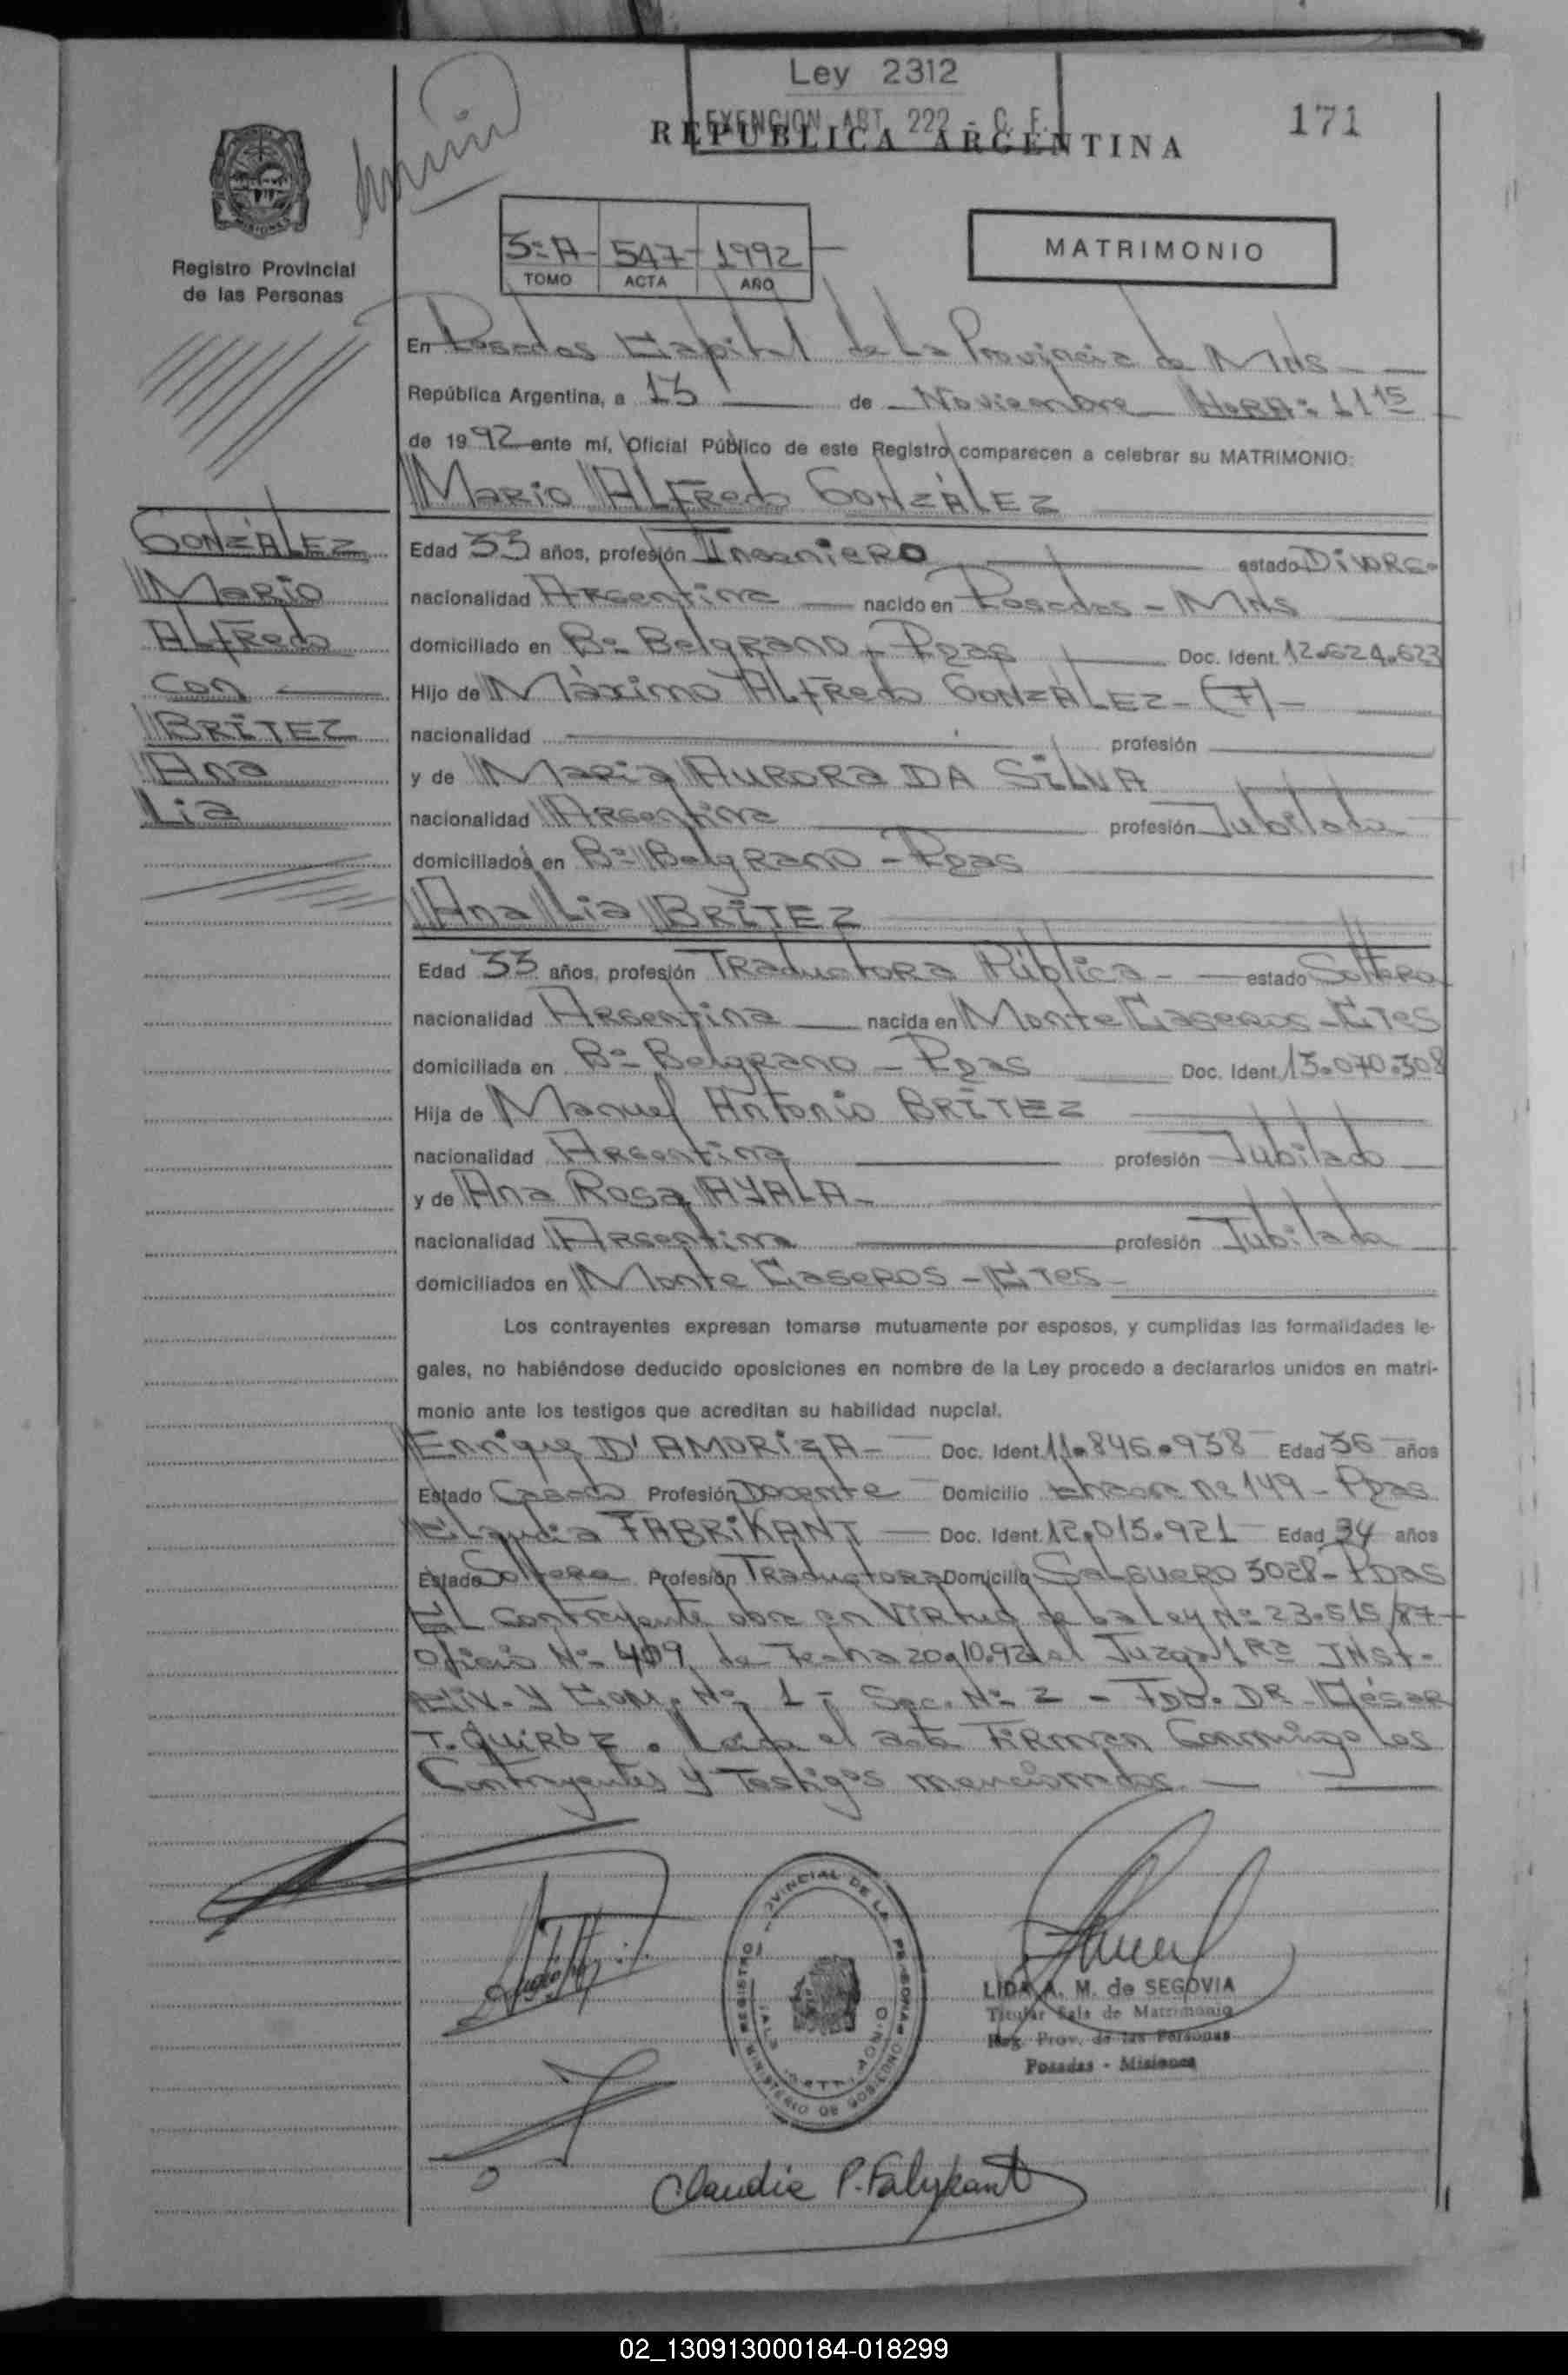 Ley 2312
EXENCION ART. 222 - C. F.
REPUBLICA ARGENTINA
171
MISIONES
Registro Provincial
de las Personas
3º A - 547 - 1992
TOMO ACTA AÑO
MATRIMONIO
En Posadas Capital de La Provincia de Mnes
República Argentina, a 13 de Noviembre HORA: 11 15
de 1992 ante mí, Oficial Público de este Registro comparecen a celebrar su MATRIMONIO:
MARIO ALFREDO GONZÁLEZ
GONZÁLEZ
MARIO
ALFREDO
con
BRÍTEZ
Ana
Lia
Edad 33 años, profesión Ingeniero estado Divorc.
nacionalidad Argentina nacido en Posadas - Mnes
domiciliado en Bº Belgrano - Pdas Doc. Ident. 12.624.623
Hijo de Máximo Alfredo GONZÁLEZ - (F) -
nacionalidad profesión
y de Maria AURORA DA SILVA
nacionalidad Argentina profesión Jubilada
domiciliados en Bº Belgrano - Pdas
Ana Lia BRÍTEZ
Edad 33 años, profesión Traductora Pública - estado Soltera
nacionalidad Argentina nacida en Monte Caseros - Ctes
domiciliada en Bº Belgrano - Pdas Doc. Ident. 13.070.308
Hija de Manuel Antonio BRÍTEZ
nacionalidad Argentina profesión Jubilado
y de Ana Rosa AYALA -
nacionalidad Argentina profesión Jubilada
domiciliados en Monte Caseros - Ctes -
Los contrayentes expresan tomarse mutuamente por esposos, y cumplidas las formalidades le-
gales, no habiéndose deducido oposiciones en nombre de la Ley procedo a declararlos unidos en matri-
monio ante los testigos que acreditan su habilidad nupcial.
Enrique D'AMORIZA - Doc. Ident. 11.846.938 Edad 36 años
Estado Casado Profesión Docente Domicilio Nº 149 - Pdas
Claudia FABRIKANT Doc. Ident. 12.015.921 Edad 34 años
Estado Soltera Profesión Traductora Domicilio Salguero 3028 - Pdas
El Contrayente obra en Virtud de La Ley Nº 23.515/87
Oficio Nº 409 de Fecha 20.10.92 del Juzg. 1 Ra Inst.
Civ. y Com. Nº 1 - Sec. Nº 2 - Fdo. DR. César
T. QUIRÓZ. Leída el acta Firman Conmigo Los
Contrayentes y Testigos mencionados
REGISTRO PROVINCIAL DE LAS PERSONAS
MINISTERIO DE GOBIERNO
LIDA A. M. de SEGOVIA
Titular Sala de Matrimonio
Reg. Prov. de las Personas
Posadas - Misiones
Claudia P. Fabrykant
02_130913000184-018299